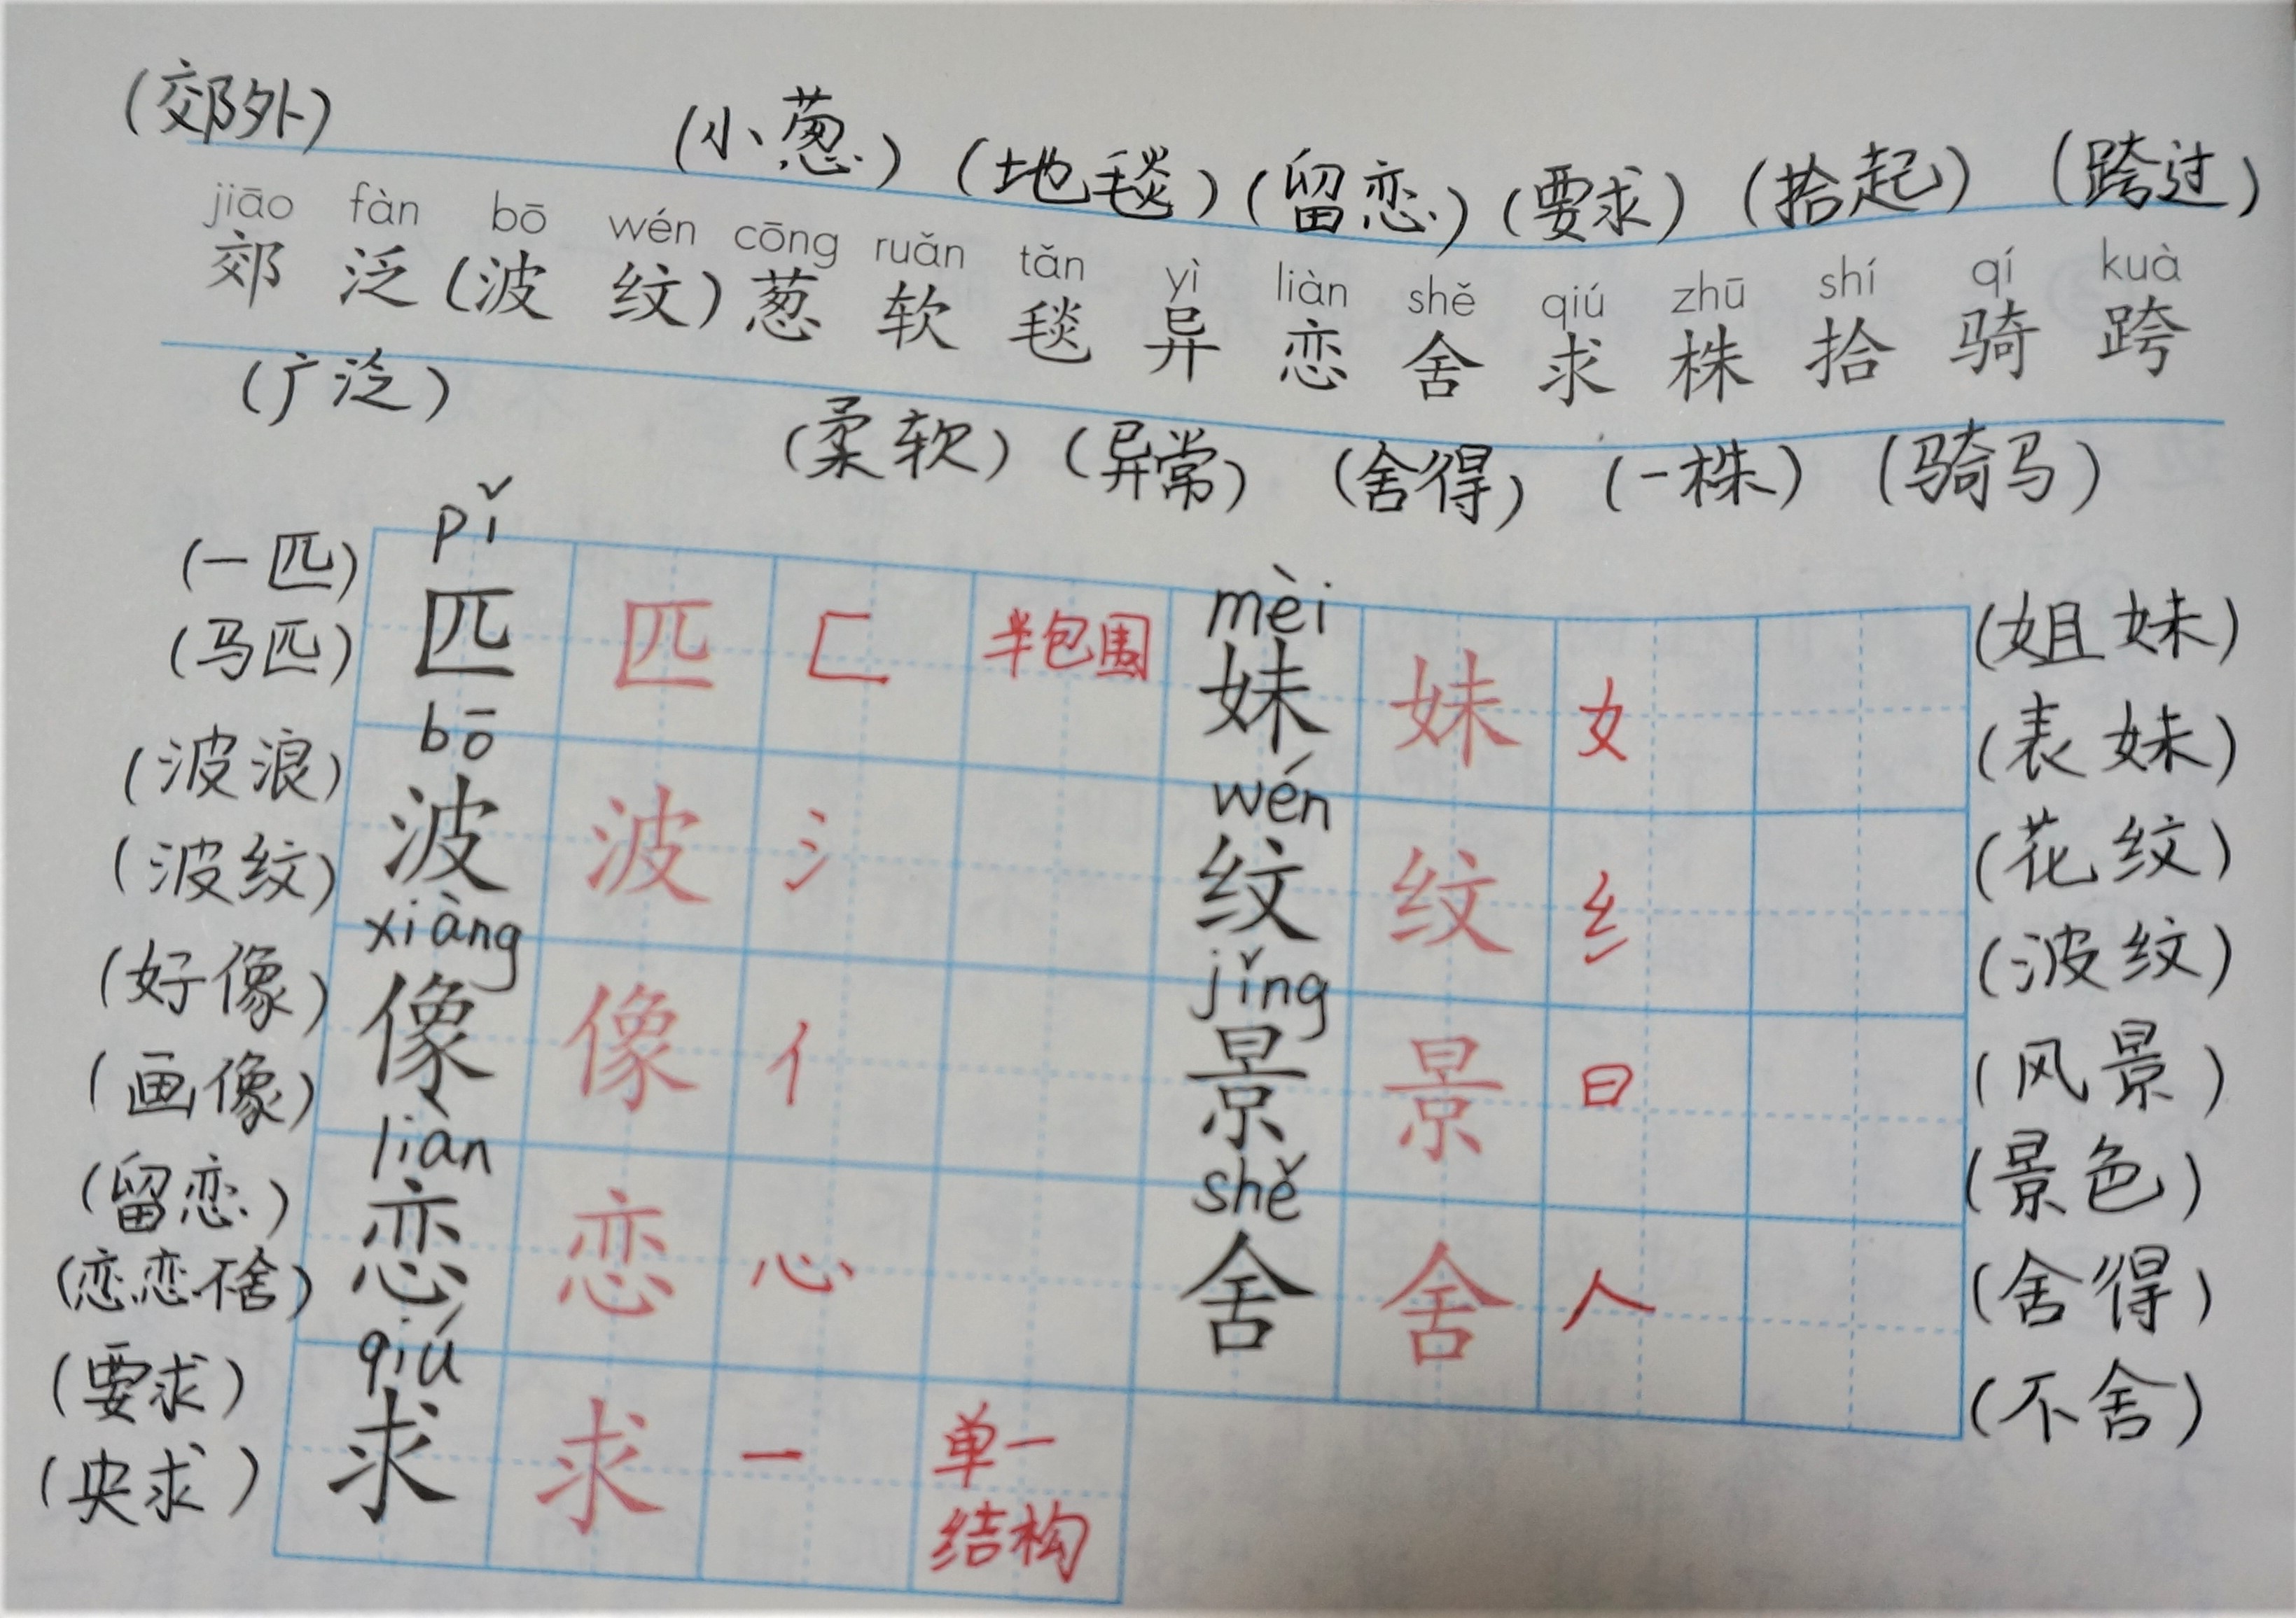 (郊外) (小葱) (地毯) (留恋) (要求) (拾起) (跨过)
jiāo fàn bō wén cōng ruǎn tǎn yì liàn shě qiú zhū shí qí kuà
郊 泛 (波 纹) 葱 软 毯 异 恋 舍 求 株 拾 骑 跨
(广泛) (柔软) (异常) (舍得) (一株) (骑马)
pǐ mèi
(一匹)
(马匹) 匹 匹 匚 半包围 妹 妹 女 (姐妹)
(表妹)
bō wén
(波浪)
(波纹) 波 波 氵 纹 纹 纟 (花纹)
(波纹)
xiàng jǐng
(好像)
(画像) 像 像 亻 景 景 日 (风景)
(景色)
liàn shě
(留恋)
(恋恋不舍) 恋 恋 心 舍 舍 人 (舍得)
(不舍)
qiú
(要求)
(央求) 求 求 一 单一
结构